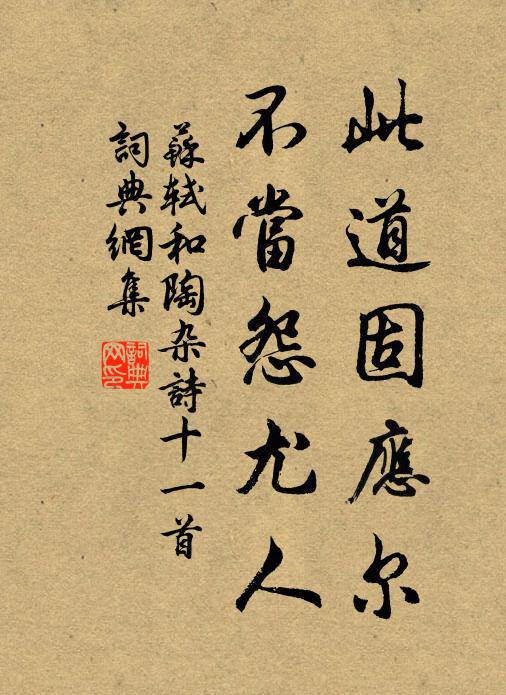 此道固應尔
不當怨尤人
蘇軾和陶杂詩十一首
詞典網集
詞典网印